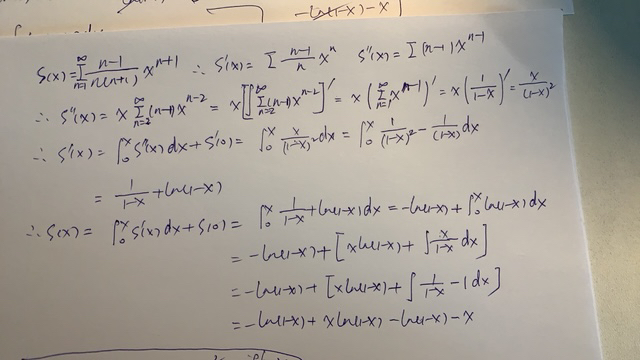 -ln(1-x)-x
S(x)=∑_{n=1}^{∞} \frac{n-1}{n(n+1)} x^{n+1} ∴ S'(x)= ∑ \frac{n-1}{n} x^n S''(x)= ∑(n-1)x^{n-1}
∴ S''(x) = x ∑_{n=2}^{∞} (n-1)x^{n-2} = x[∑_{n=2}^{∞} (n-1)x^{n-2}]' = x(∑_{n=1}^{∞} x^{n-1})' = x(\frac{1}{1-x})' = \frac{x}{(1-x)^2}
∴ S'(x) = ∫_0^x S''(x)dx + S'(0) = ∫_0^x \frac{x}{(1-x)^2} dx = ∫_0^x \frac{1}{(1-x)^2} - \frac{1}{(1-x)} dx
= \frac{1}{1-x} + ln(1-x)
∴ S(x) = ∫_0^x S'(x)dx + S(0) = ∫_0^x \frac{1}{1-x} + ln(1-x)dx = -ln(1-x) + ∫_0^x ln(1-x)dx
= -ln(1-x) + [x ln(1-x) + ∫ \frac{x}{1-x} dx]
= -ln(1-x) + [x ln(1-x) + ∫ \frac{1}{1-x} - 1 dx]
= -ln(1-x) + x ln(1-x) - ln(1-x) - x